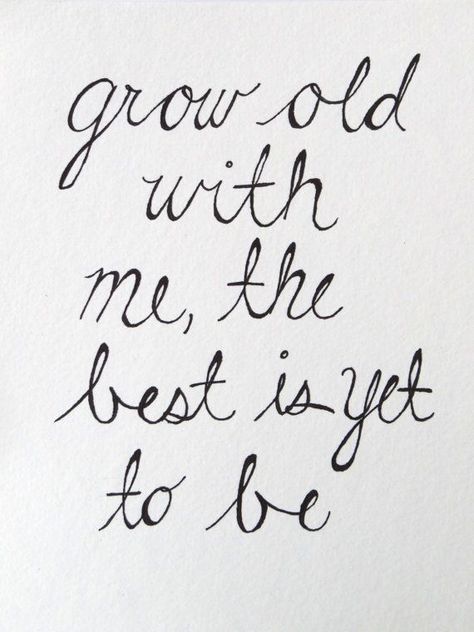 grow old
with
me, the
best is yet
to be